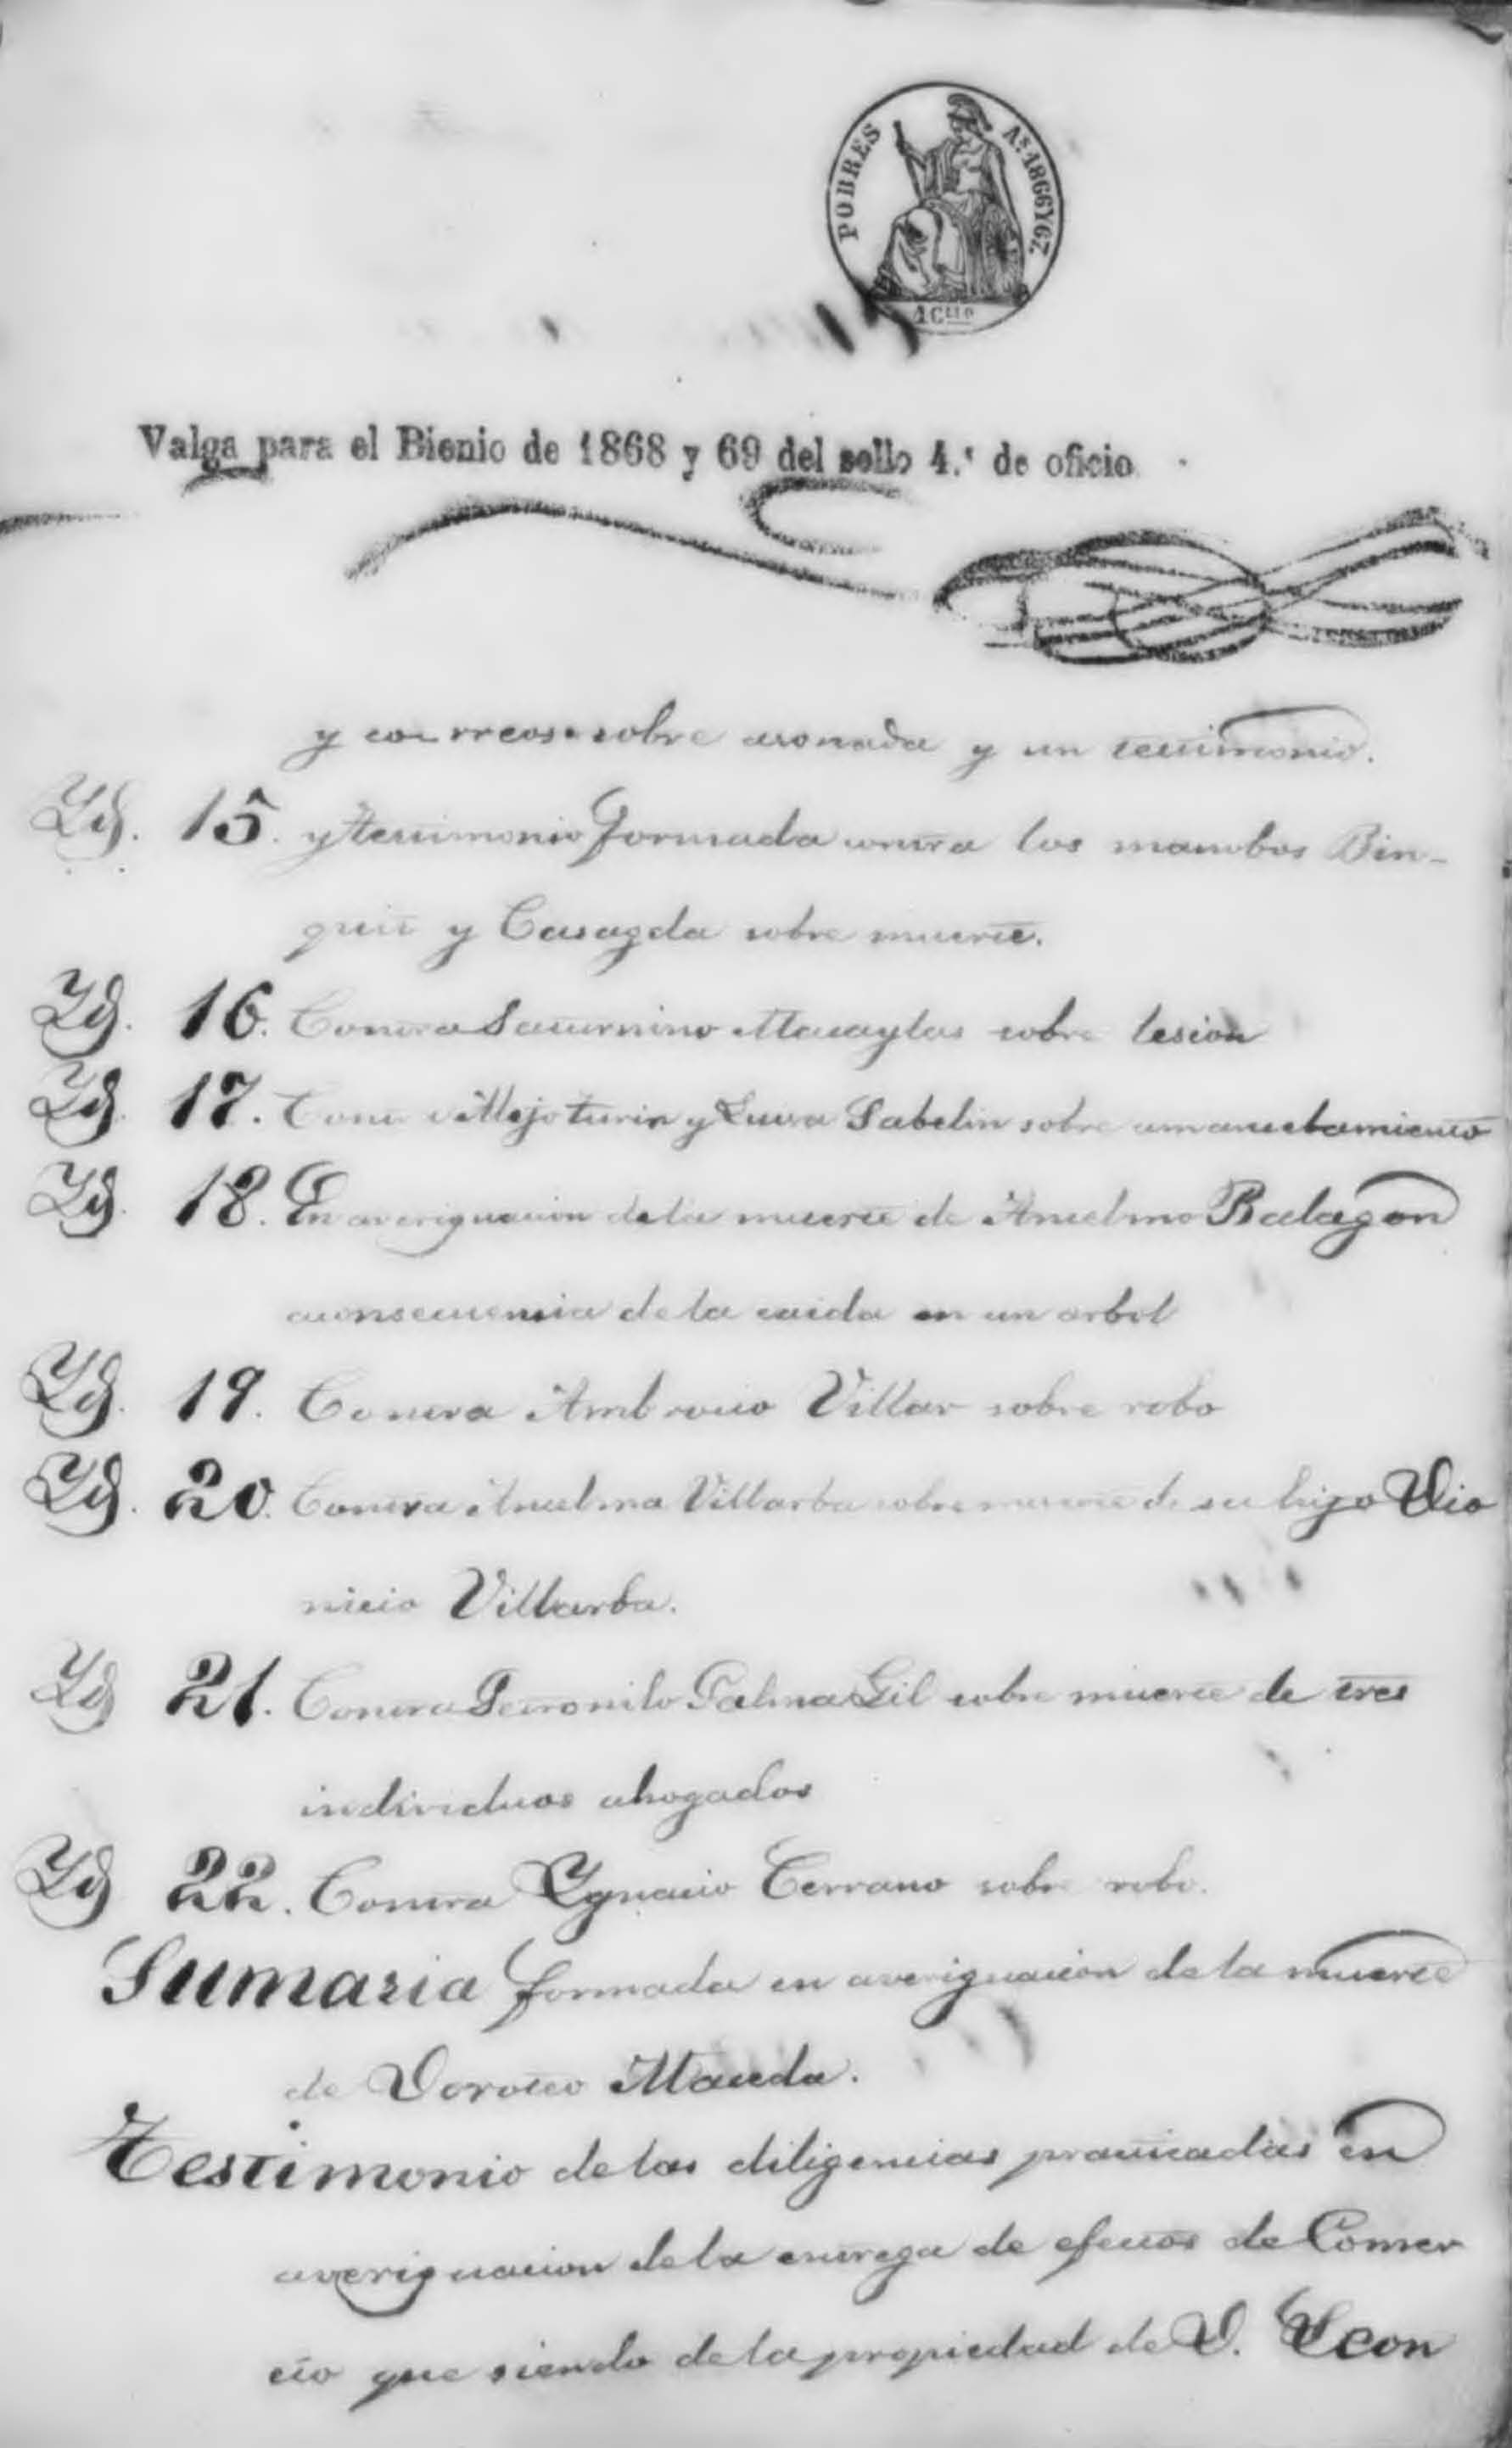 POBRES Aˢ 1866 Y 67.
Valga para el Bienio de 1868 y 69 del sello 4.º de oficio
y correos sobre asonada y un testimonio.
Yd. 15. y testimonio formada contra los manobos Bin-
quit y Casagda sobre muerte.
Yd. 16. Contra Saturnino Macaylas sobre lesion
Yd. 17. Contra Alejo Turin y Luisa Sabelin sobre amancebamiento
Yd. 18. En averiguacion de la muerte de Anselmo Balagon
a consecuencia de la caida en un arbol
Yd. 19. Contra Ambrocio Villar sobre robo
Yd. 20. Contra Anselma Villarba sobre muerte de su hijo Dio
nicio Villarba.
Yd 21. Contra Petronilo Palma Gil sobre muerte de tres
individuos ahogados
Yd 22. Contra Ygnacio Cerrano sobre robo.
Sumaria formada en averiguacion de la muerte
de Doroteo Maceda.
Testimonio de las diligencias practicadas en
averiguacion de la entrega de efectos de Comer
cio que siendo de la propiedad de D. Leon